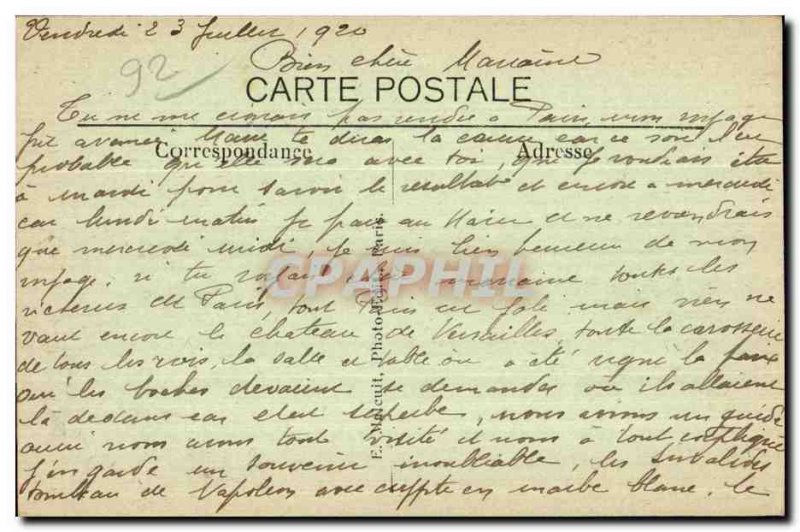 Vendredi 23 Juillet 1920
92
Bien chère Marraine
CARTE POSTALE
Tu ne me croyais pas rendre à Paris, mon voyage
fut avancé, Maman te diras la cause car ce soir l'est
Correspondance
Adresse
probable qu'elle sera avec toi, que je voudrais être
à mardi pour savoir le résultat et encore a mercredi
car lundi matin je pars au Havre et ne reviendrais
que mercredi midi, je suis bien heureuse de mon
voyage, si tu voyais chère marraine toutes les
CPAPHIL
de Paris, tout Paris mais rien ne
vaut encore le chateau de Versailles, toute la carosserie
de tous les rois, la salle et table ou a été signé la paix
que les boches devaient se demander ou ils allaient
là dedans car c'est superbe, nous avions un guide
aussi nous avons tout visité et nous à tout expliqué
j'en garde un souvenir inoubliable, les Invalides
tombeau de Napoléon avec en marbre blanc, le
E. Malcuit, Photo-Edit., Paris.